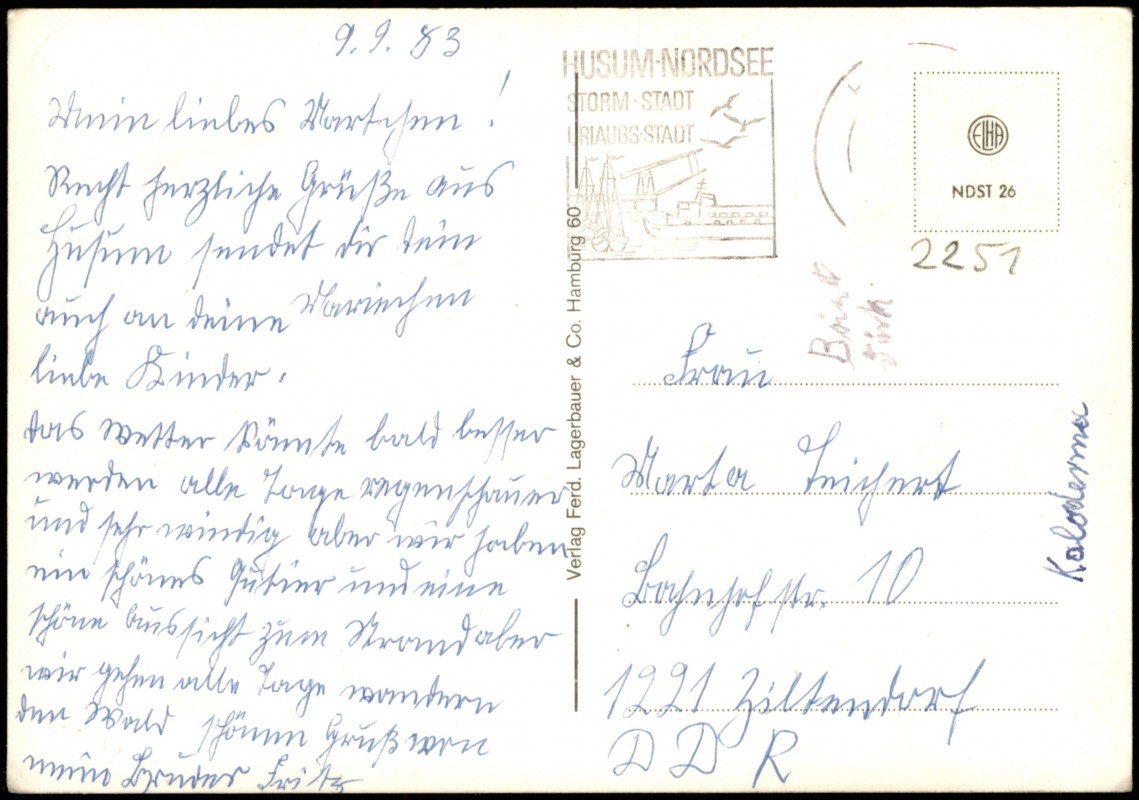 9.9.83
Mein liebes Martchen!
Recht herzliche Grüße aus
Husum sendet dir dein
Mariechen
auch an deine
liebe Kinder.
das Wetter könnte bald besser
werden alle Tage regenschauer
und sehr windig aber wir haben
ein schönes Qutier und eine
schöne Aussicht zum Strand aber
wir gehen alle Tage wandern
den Wald schönen Gruß von
mein Bruder Fritz
HUSUM-NORDSEE
STORM-STADT
URLAUBS-STADT
Verlag Ferd. Lagerbauer & Co. Hamburg 60
ELHA
NDST 26
2251
Frau
Marta Teichert
Bahnhofstr. 10
1221 Ziltendorf
DDR
Kaloderma